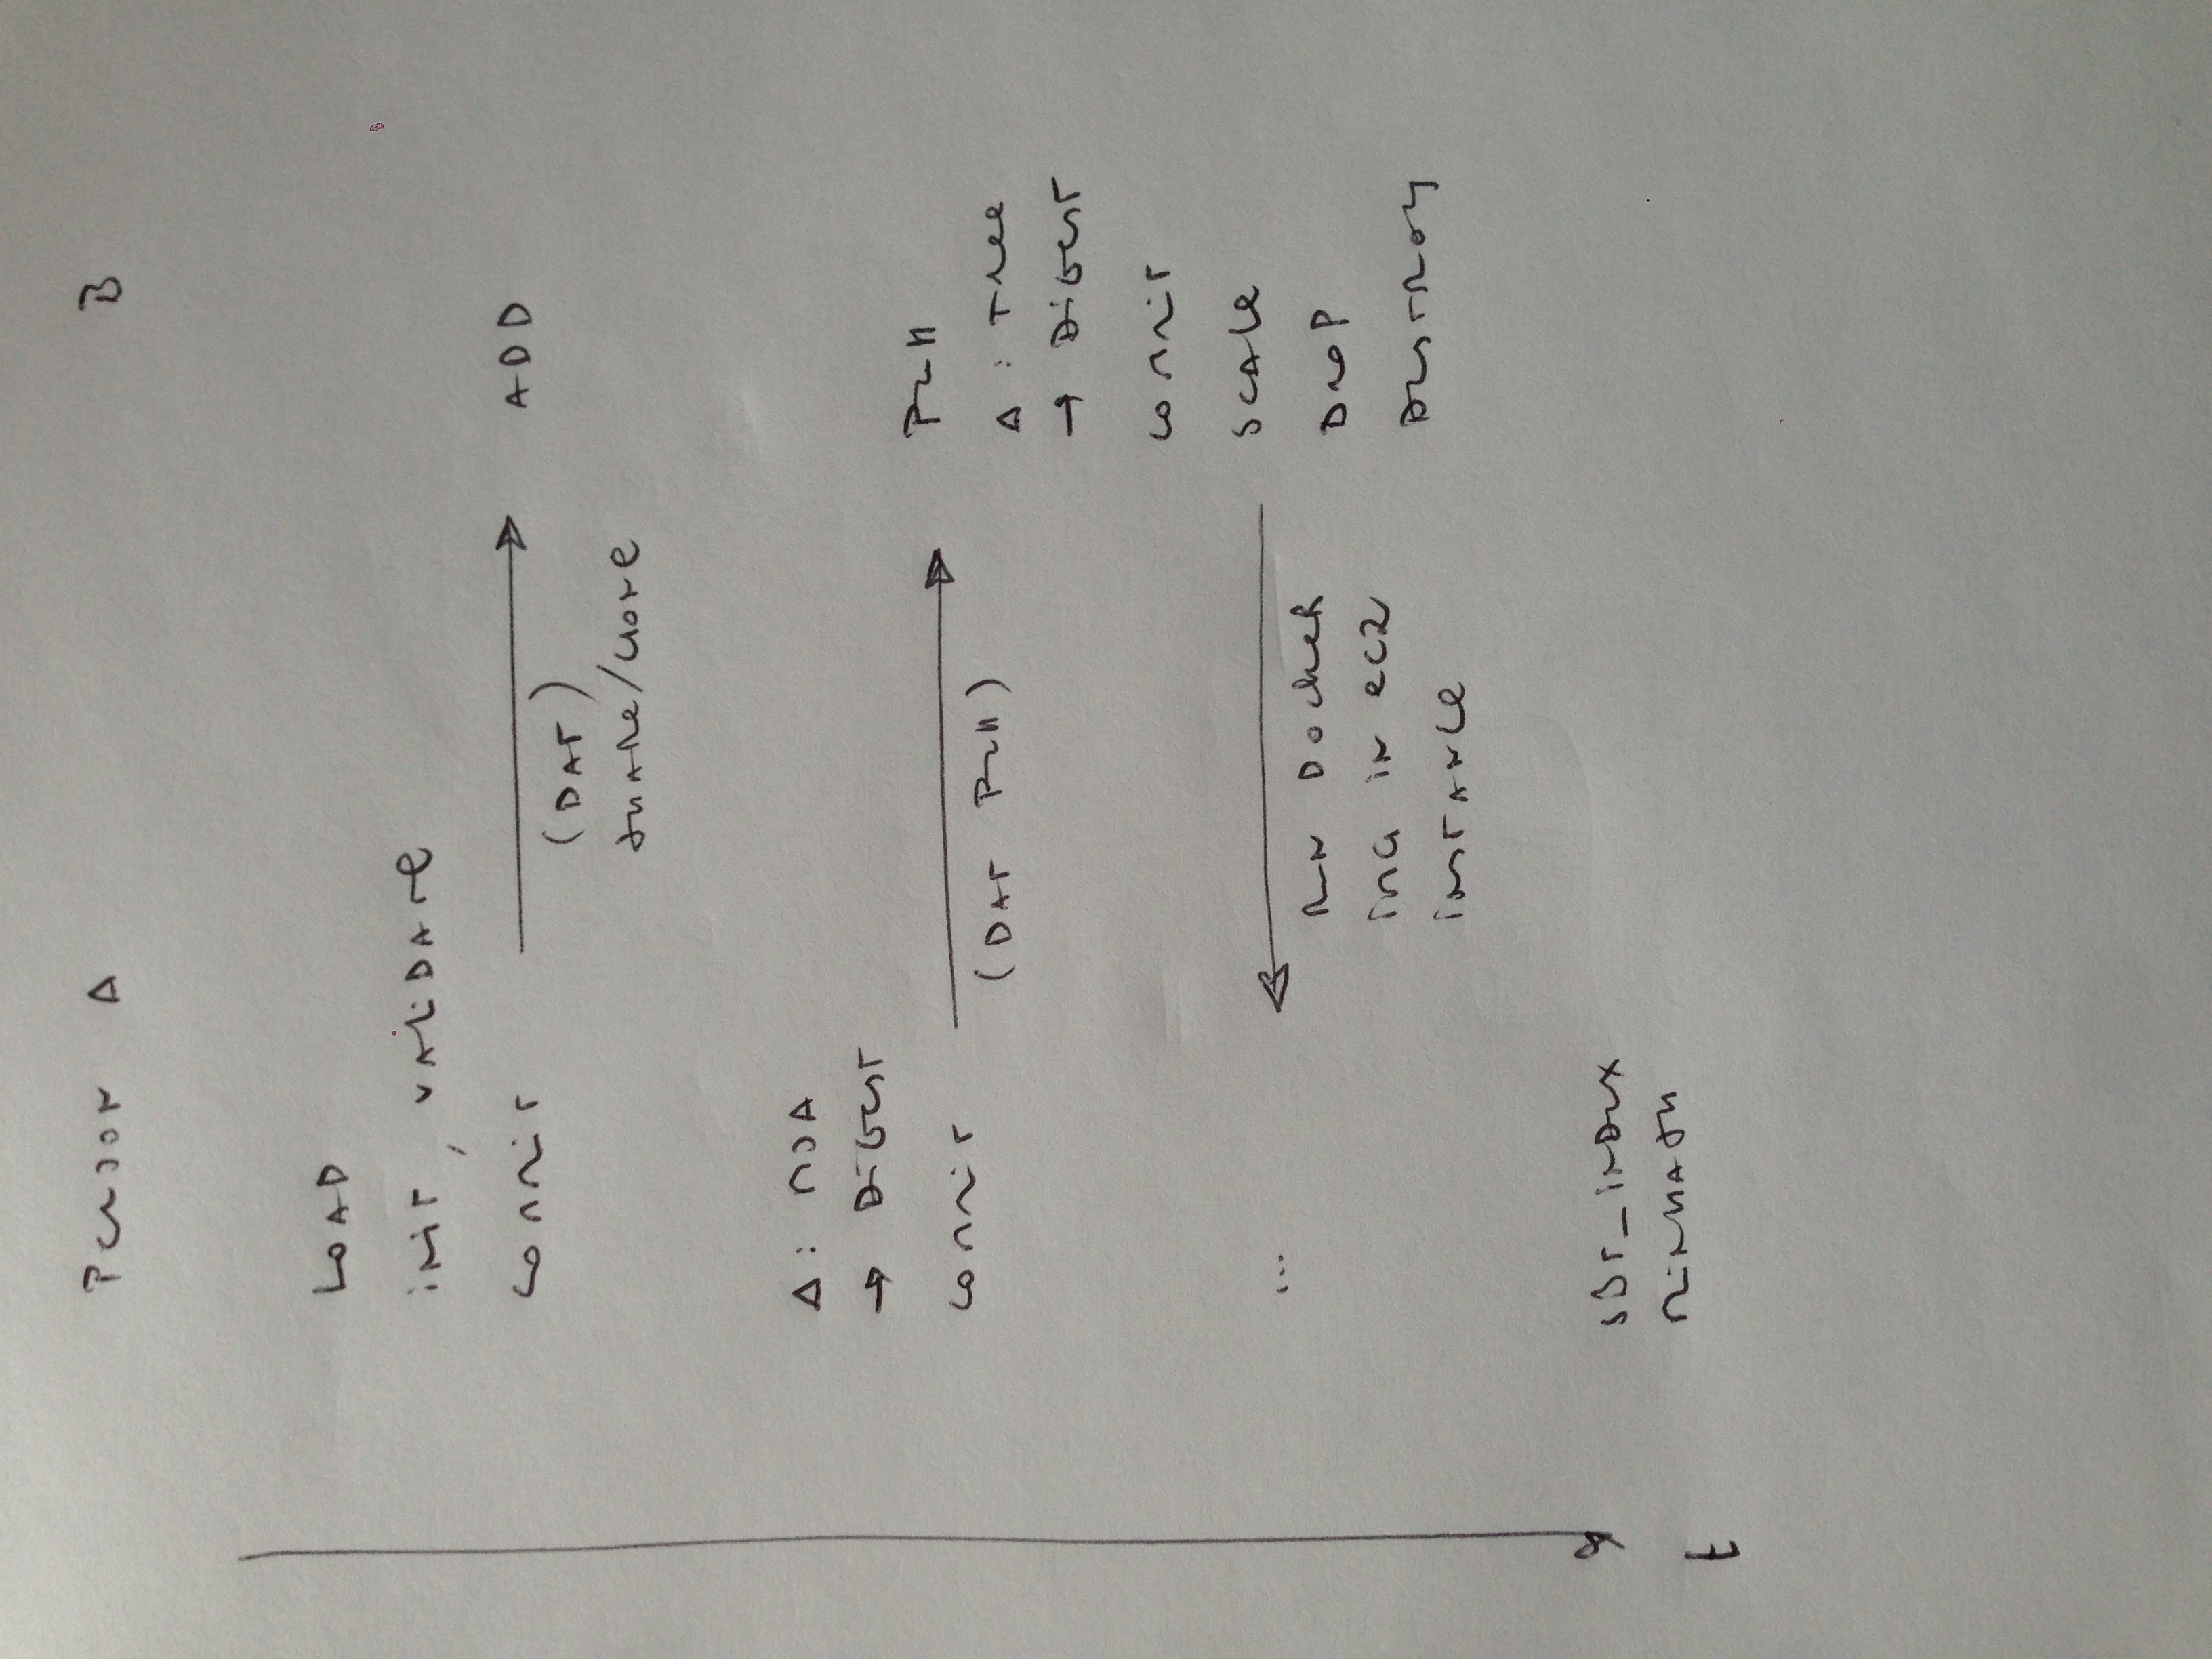 PERSON A B
LOAD
iNiT, VALiDATe
COMMiT ADD
(DAT)
SHARe/CLONe
Δ: MSA
→ DiGEST
COMMiT PULL
(DAT PULL)
Δ : TRee
→ DiGEST
COMMiT
... SCALe
RUN DOCKER DROP
iMG iN eC2 DESTROY
iNSTANCe
SBT_iNDEX
MiNHASH
t